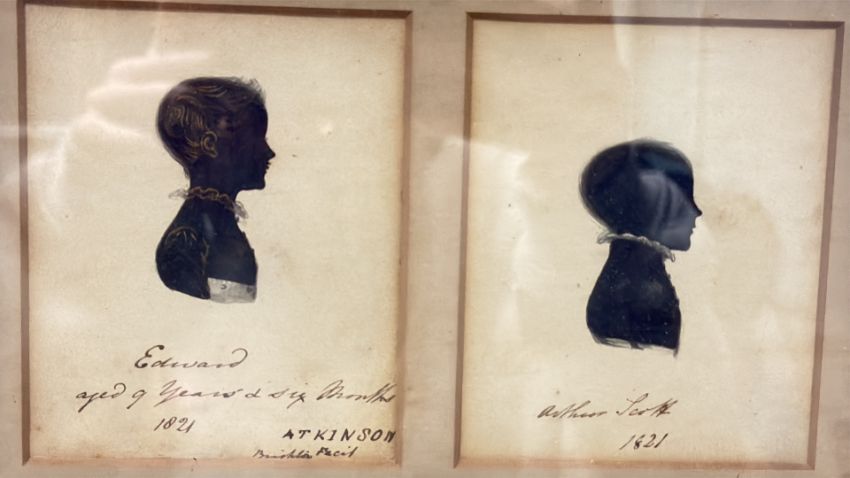 Edward
aged 9 Years & six Months
1821
ATKINSON
Brighton Fecit
Arthur Scott
1821